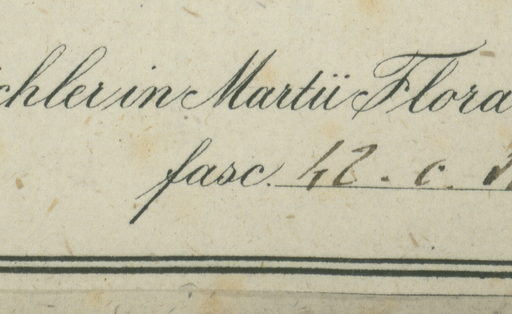 chler in Martii Flora
fasc. 42. c.